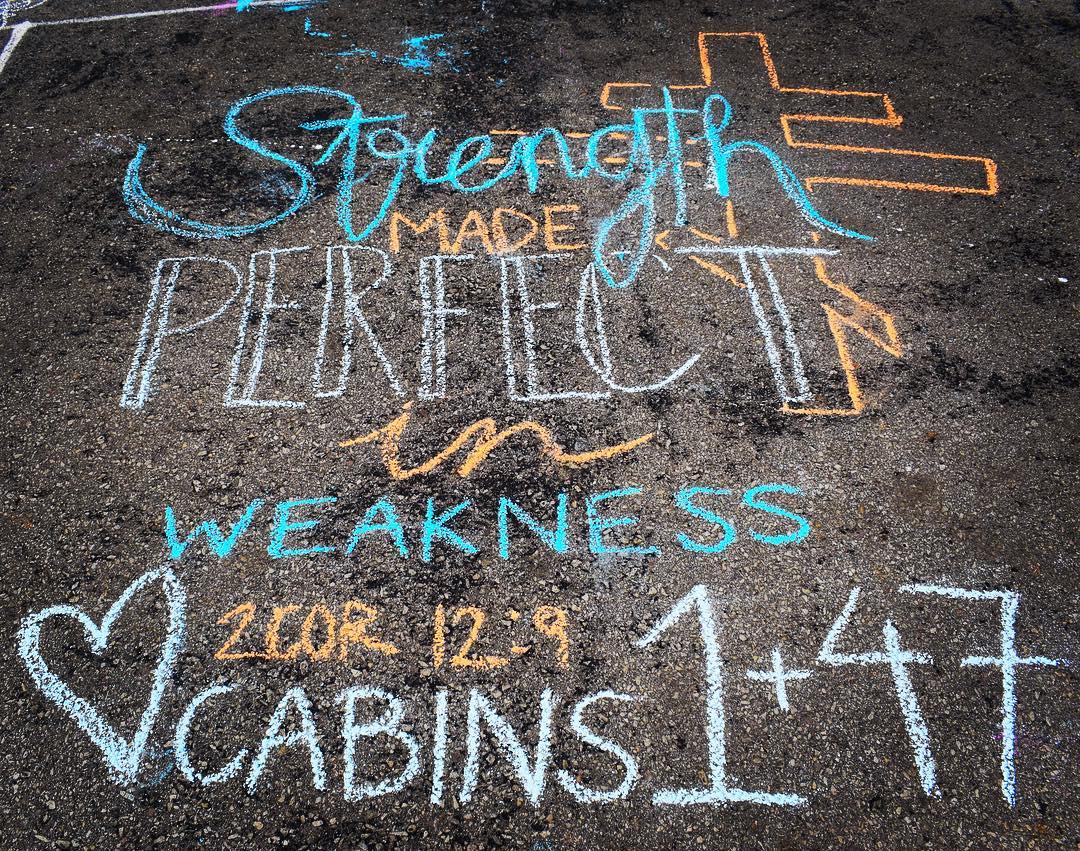 Strength
MADE
PERFECT
in
WEAKNESS
2COR 12-9
CABINS 1+47